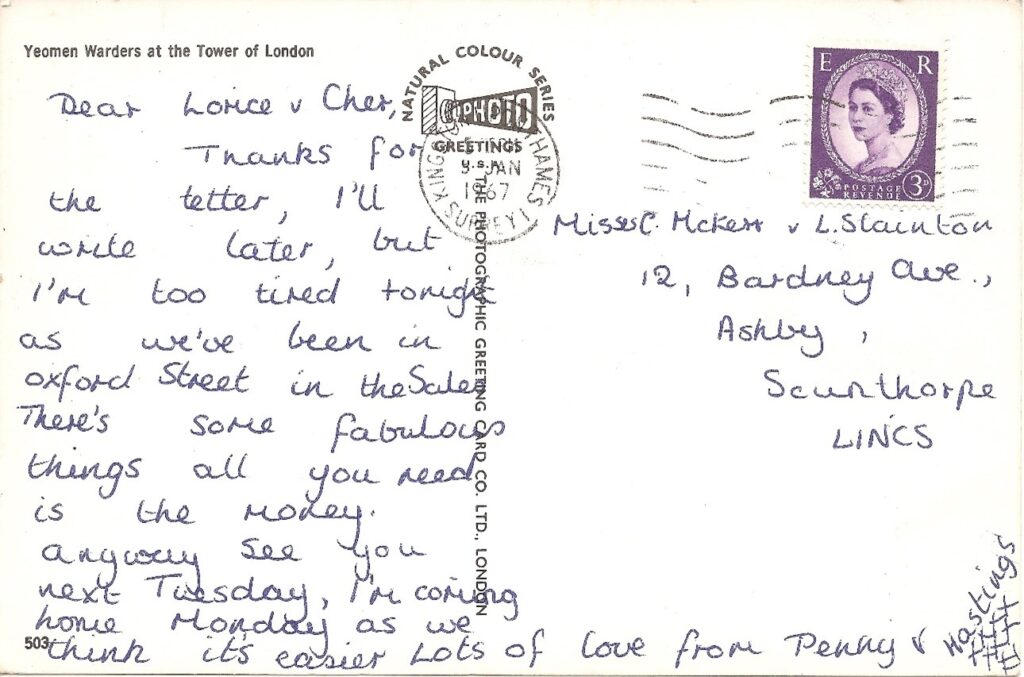 Yeomen Warders at the Tower of London
Dear Lorice v Cher,
Thanks for
the letter, I'll
write later, but
I'm too tired tonight
as we've been in
oxford Street in the Sales
There's some fabulous
things all you need
is the money.
anyway see you
next Tuesday, I'm coming
home Monday as we
think it's easier Lots of love from Penny v
Hastings
503
NATURAL COLOUR SERIES
PHOTO
GREETINGS
U.S.A.
THE PHOTOGRAPHIC GREETING CARD CO. LTD., LONDON
KINGSTON THAMES
JAN
1967
SURREY
E R
POSTAGE
REVENUE
3D
Misses C. McKerr v L. Stainton
12, Bardney Ave.,
Ashby,
Scunthorpe
LINCS